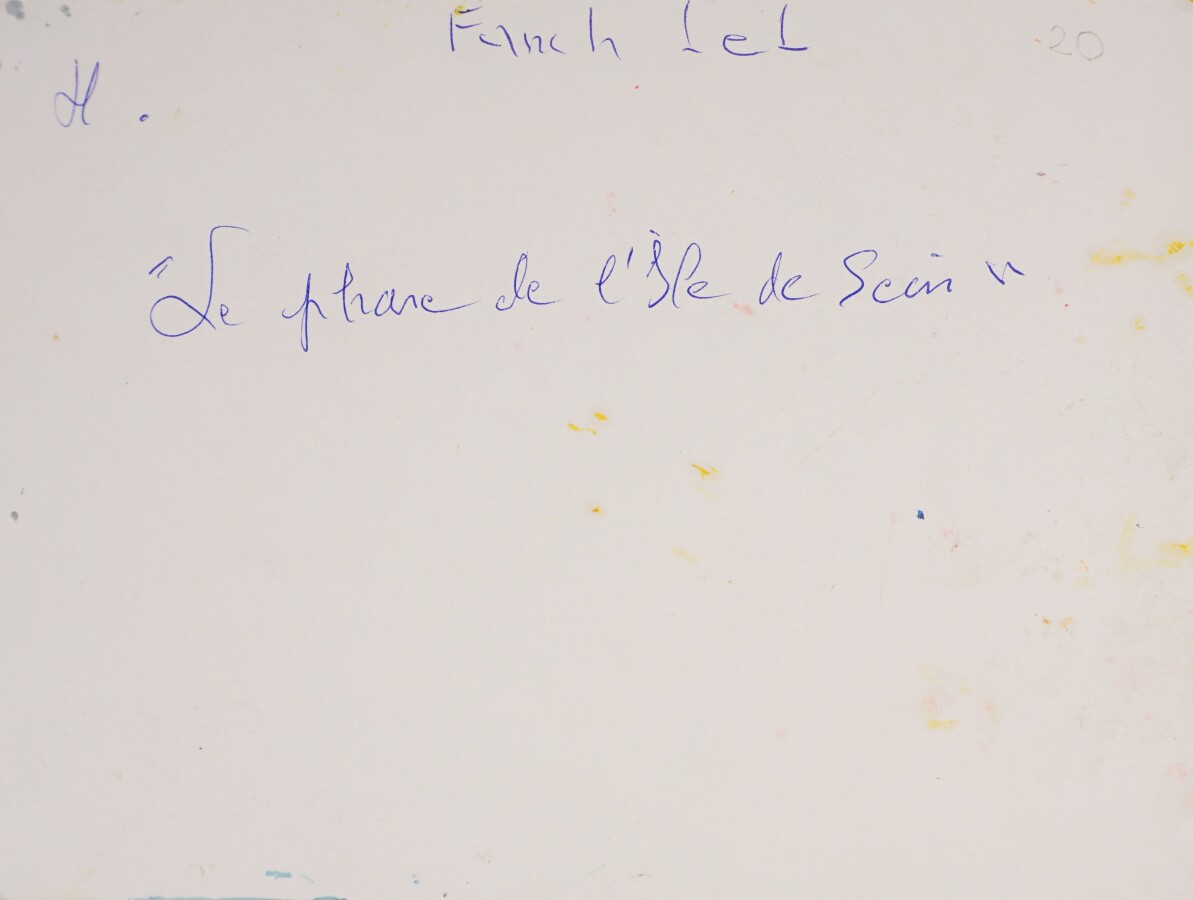 Fanch Lel 20
H.
"Le phare de l'Île de Sein"